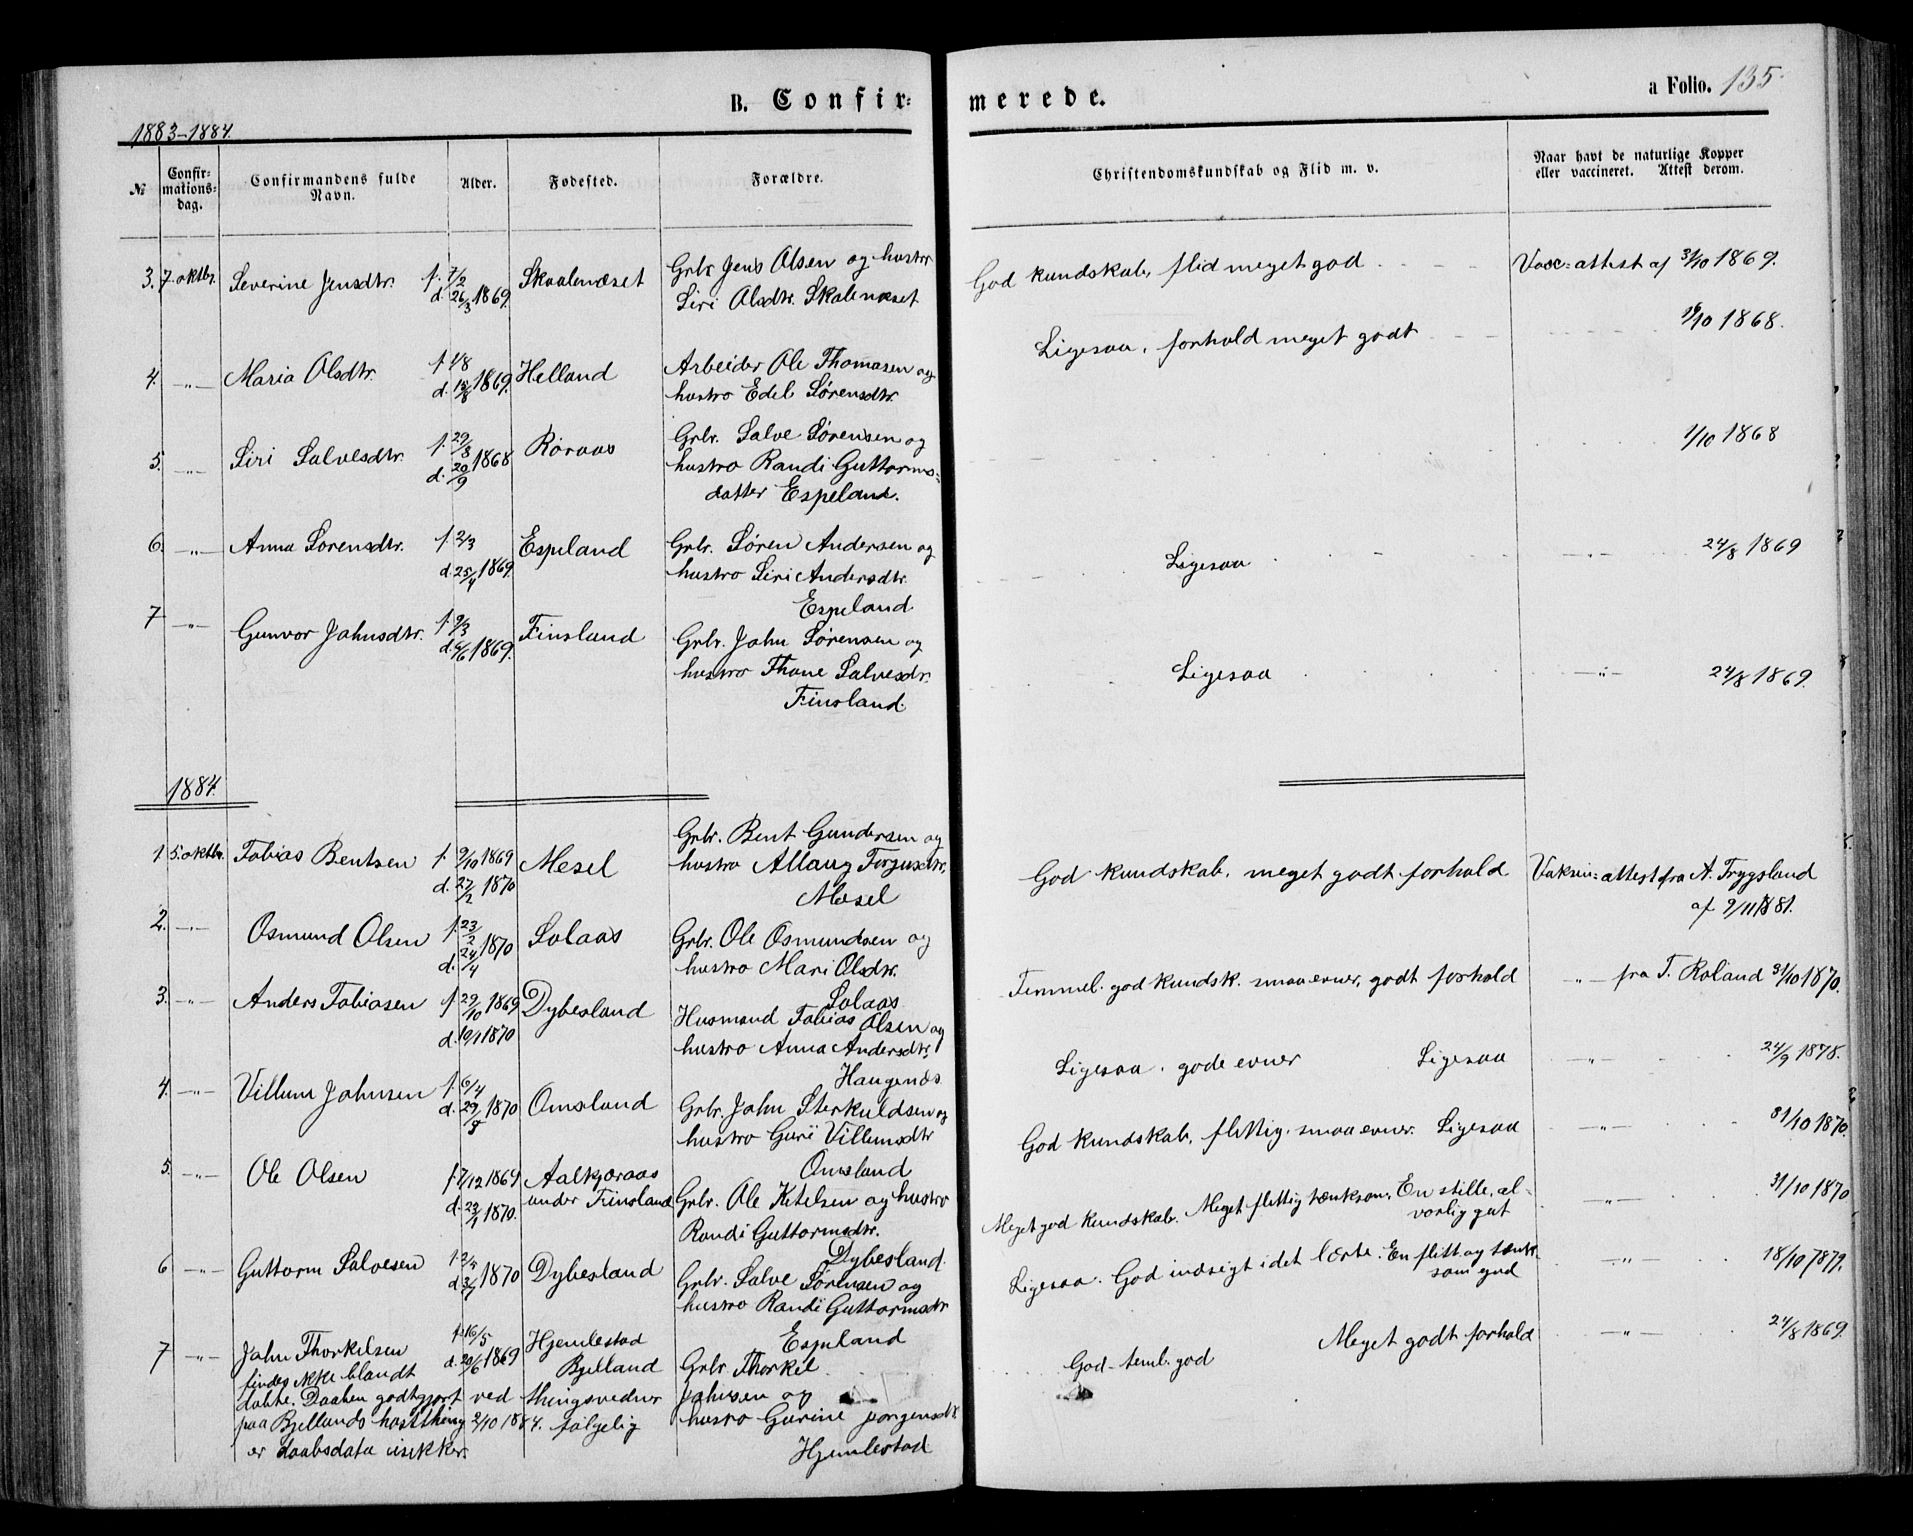 B. Confir-
merede.
a Folio. 135.
1883-1884.
№
Confir-
mations-
dag.
Confirmandens fulde
Navn.
Alder.
Fødested.
Forældre.
Christendomskundskab og Flid m. v.
Naar havt de naturlige Kopper
eller vaccineret. Attest derom.
3. 7. oktbr. Severine Jensdtr. f. 7/2 d. 26/3 1869. Skaalenæset
Grbr Jens Olsen og hustro
Siri Olsdtr. Skalenæset
God kundskab, flid meget god
Vacc: attest af 31/10 1869.
4. -"- Maria Olsdtr. f. 4/8 d. 15/8 1869. Helland
Arbeider Ole Thomasen og
hustro Edel Sørensdtr.
Ligesaa, forhold meget godt
/10 1868.
5. -"- Siri Salvesdtr. f. 29/8 d. 20/9 1868 Røraas
Grbr. Salve Sørensen og
hustro Randi Guttorms-
datter Espeland.
1/10 1868
6. -"- Anna Sørensdtr. f. 2/3 d. 25/4 1869. Espeland
Grbr. Søren Andersen og
hustro Siri Andersdtr.
Espeland
Ligesaa
-"- 24/8 1869
7 -"- Gunvor Jahnsdtr. f. 9/3 d. 6/6 1869. Finsland
Grbr. Jahn Sørensen og
hustro Thone Salvesdr.
Finsland.
Ligesaa
-"- 24/8 1869.
1884.
1 5. oktbr. Tobias Bentsen f. 9/10 1869 d. 27/2 1870 Mesel
Grbr. Bent Gundersen og
hustro Allaug Torjusdtr,
Mesel
God kundskab, meget godt forhold
Vaksin: attest fra A. Trygsland
af 9/11 1881.
2. -"- Osmund Olsen f. 23/2 d. 24/4 1870 Solaas
Grbr. Ole Osmundsen og
hustro Mari Olsdtr.
Solaas
Temmel. god kundsk. smaa evner, godt forhold
-"- fra T. Roland 31/10 1870.
3. -"- Anders Tobiasen f. 29/10 1869 d. 10/1 1870 Dybesland
Husmand Tobias Olsen og
hustro Anna Andersdtr.
Haugenes
Ligesaa. gode evner Ligesaa
-"- 24/9 1878.
4. -"- Villum Jahnsen f. 6/4 d. 29/ 1870 Omsland
Grbr. Jahn Sterkuldsen og
hustro Guri Villumsdtr
Omsland
God kundskab, flittig. smaa evner. Ligesaa
-"- 31/10 1870.
5. -"- Ole Olsen f. 7/12 1869 d. 23/1 1870. Aalkjøraas
under Finsland
Grbr. Ole Ketelsen og hustro
Randi Guttormsdtr.
Dybesland
Meget god kundskab. Meget flittig tænksom. En stille, al-
vorlig gut
-"- 31/10 1870
6 -"- Guttorm Salvesen f. 2/4 d. 3/7 1870 Dybesland
Grbr. Salve Sørensen og
hustro Randi Guttormsdtr
Espeland
Ligesaa. God indsigt i det lærte. En flitt. og tænk-
som gud
-"- 18/10 1879.
7 -"- Jahn Thorkelsen f. 16/5 d. 20/6 1869 Hjemlestad
Bjelland
Grbr Thorkel
Jahnsen og
hustro Gurine Jørgensdtr
Hjemlestad
findes ikke blandt
døbte. Daaben godtgjort ved thingsvedner
paa Bjellands høstthing 2/10 1884. følgelig
er daabsdata usikker.
God - teml. god Meget godt forhold
-"- 24/8 1869.